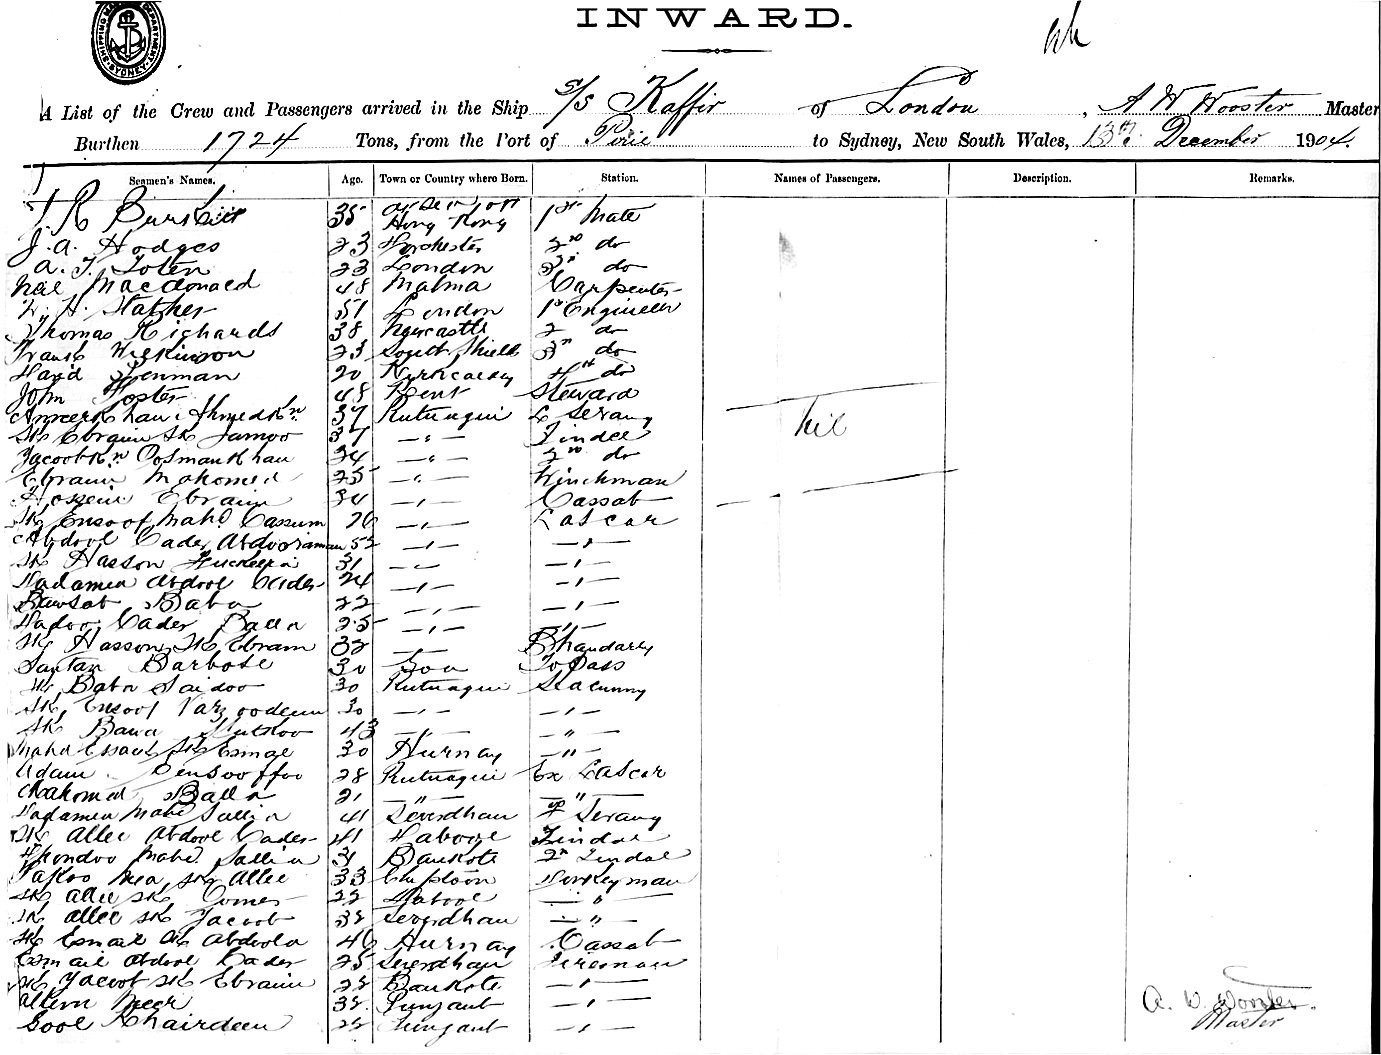 SHIPPING MASTER'S DEPARTMENT SYDNEY
INWARD.
A List of the Crew and Passengers arrived in the Ship S/S Kaffir of London, A W Wooster Master
Burthen 1724 Tons, from the Port of Pirie to Sydney, New South Wales, 13th December 1904.
Seamen's Names. Age. Town or Country where Born. Station. Names of Passengers. Description. Remarks.
T. R 35 Hong Kong 1st Mate
J. A. Hodges 23 2nd do
A. T. Toten 23 London 3rd do
Neil Macdonald 48 Malma Carpenter
H. Stather 51 London 1st Engineer
Thomas Richards 38 Newcastle 2 do
Frank Wilkinson 23 South Shields 3rd do
David Penman 20 Kirkcaldy 4th do
John Foster 48 Kent Steward
Ameer Khan Ahmed Kn. 37 Rutnagui L Serang
Sk Ebraim Sk Jamoo 37 —"— Tindel
Yacoob Kn Oosman Khan 24 —"— 2nd do
Ebraim Mahomed 25 —"— Winchman
Hossein Ebraim 34 —"— Cassab
Sk Ensoof Mahd Cassum 26 —"— Lascar
Abdool Cader Abdooraman 52 —"— —"—
Sk Hasson 31 —"— —"—
Dadamia Abdool Cader 24 —"— —"—
Bawsab Baba 22 —"— —"—
Dadoo Cader Balla 25 —"— —"—
Sk Hasson Sk Ebram 32 —"— Bhandarry
Santan Barbose 30 Goa Topass
Sk Baba Saidoo 30 Rutnagui Seacunny
Sk Ensoof 30 —"— —"—
Sk Bawa 43 —"— —"—
Mahd Essack Sk Esmal 30 Hurnay —"—
Adam 28 Rutnagui Ex Lascar
Mahomed Balla 21 —"— —"—
Dadamia Mahd Sallia 41 Severdhan Serang
Sk Allee Abdool Cader 41 Daboge Tindal
Mahd Sallia 31 Bankote 2n Tindal
Sk Allee 33 Donkeyman
Sk Allee Sk Oomer 22 Dabool —"—
Sk Allee Sk Yacoob 32 Severdhan —"—
Sk Esmail Sk Abdoola 46 Hurnay Cassab
Esmail Abdool Cader 25 Severdhan Fireman
Sk Yacoob Sk Ebraim 22 Bankote —"—
Meer 32 Punjaut —"—
Gool Khairdeen 22 Punjaut —"—
Nil
A. W. Wooster.
Master